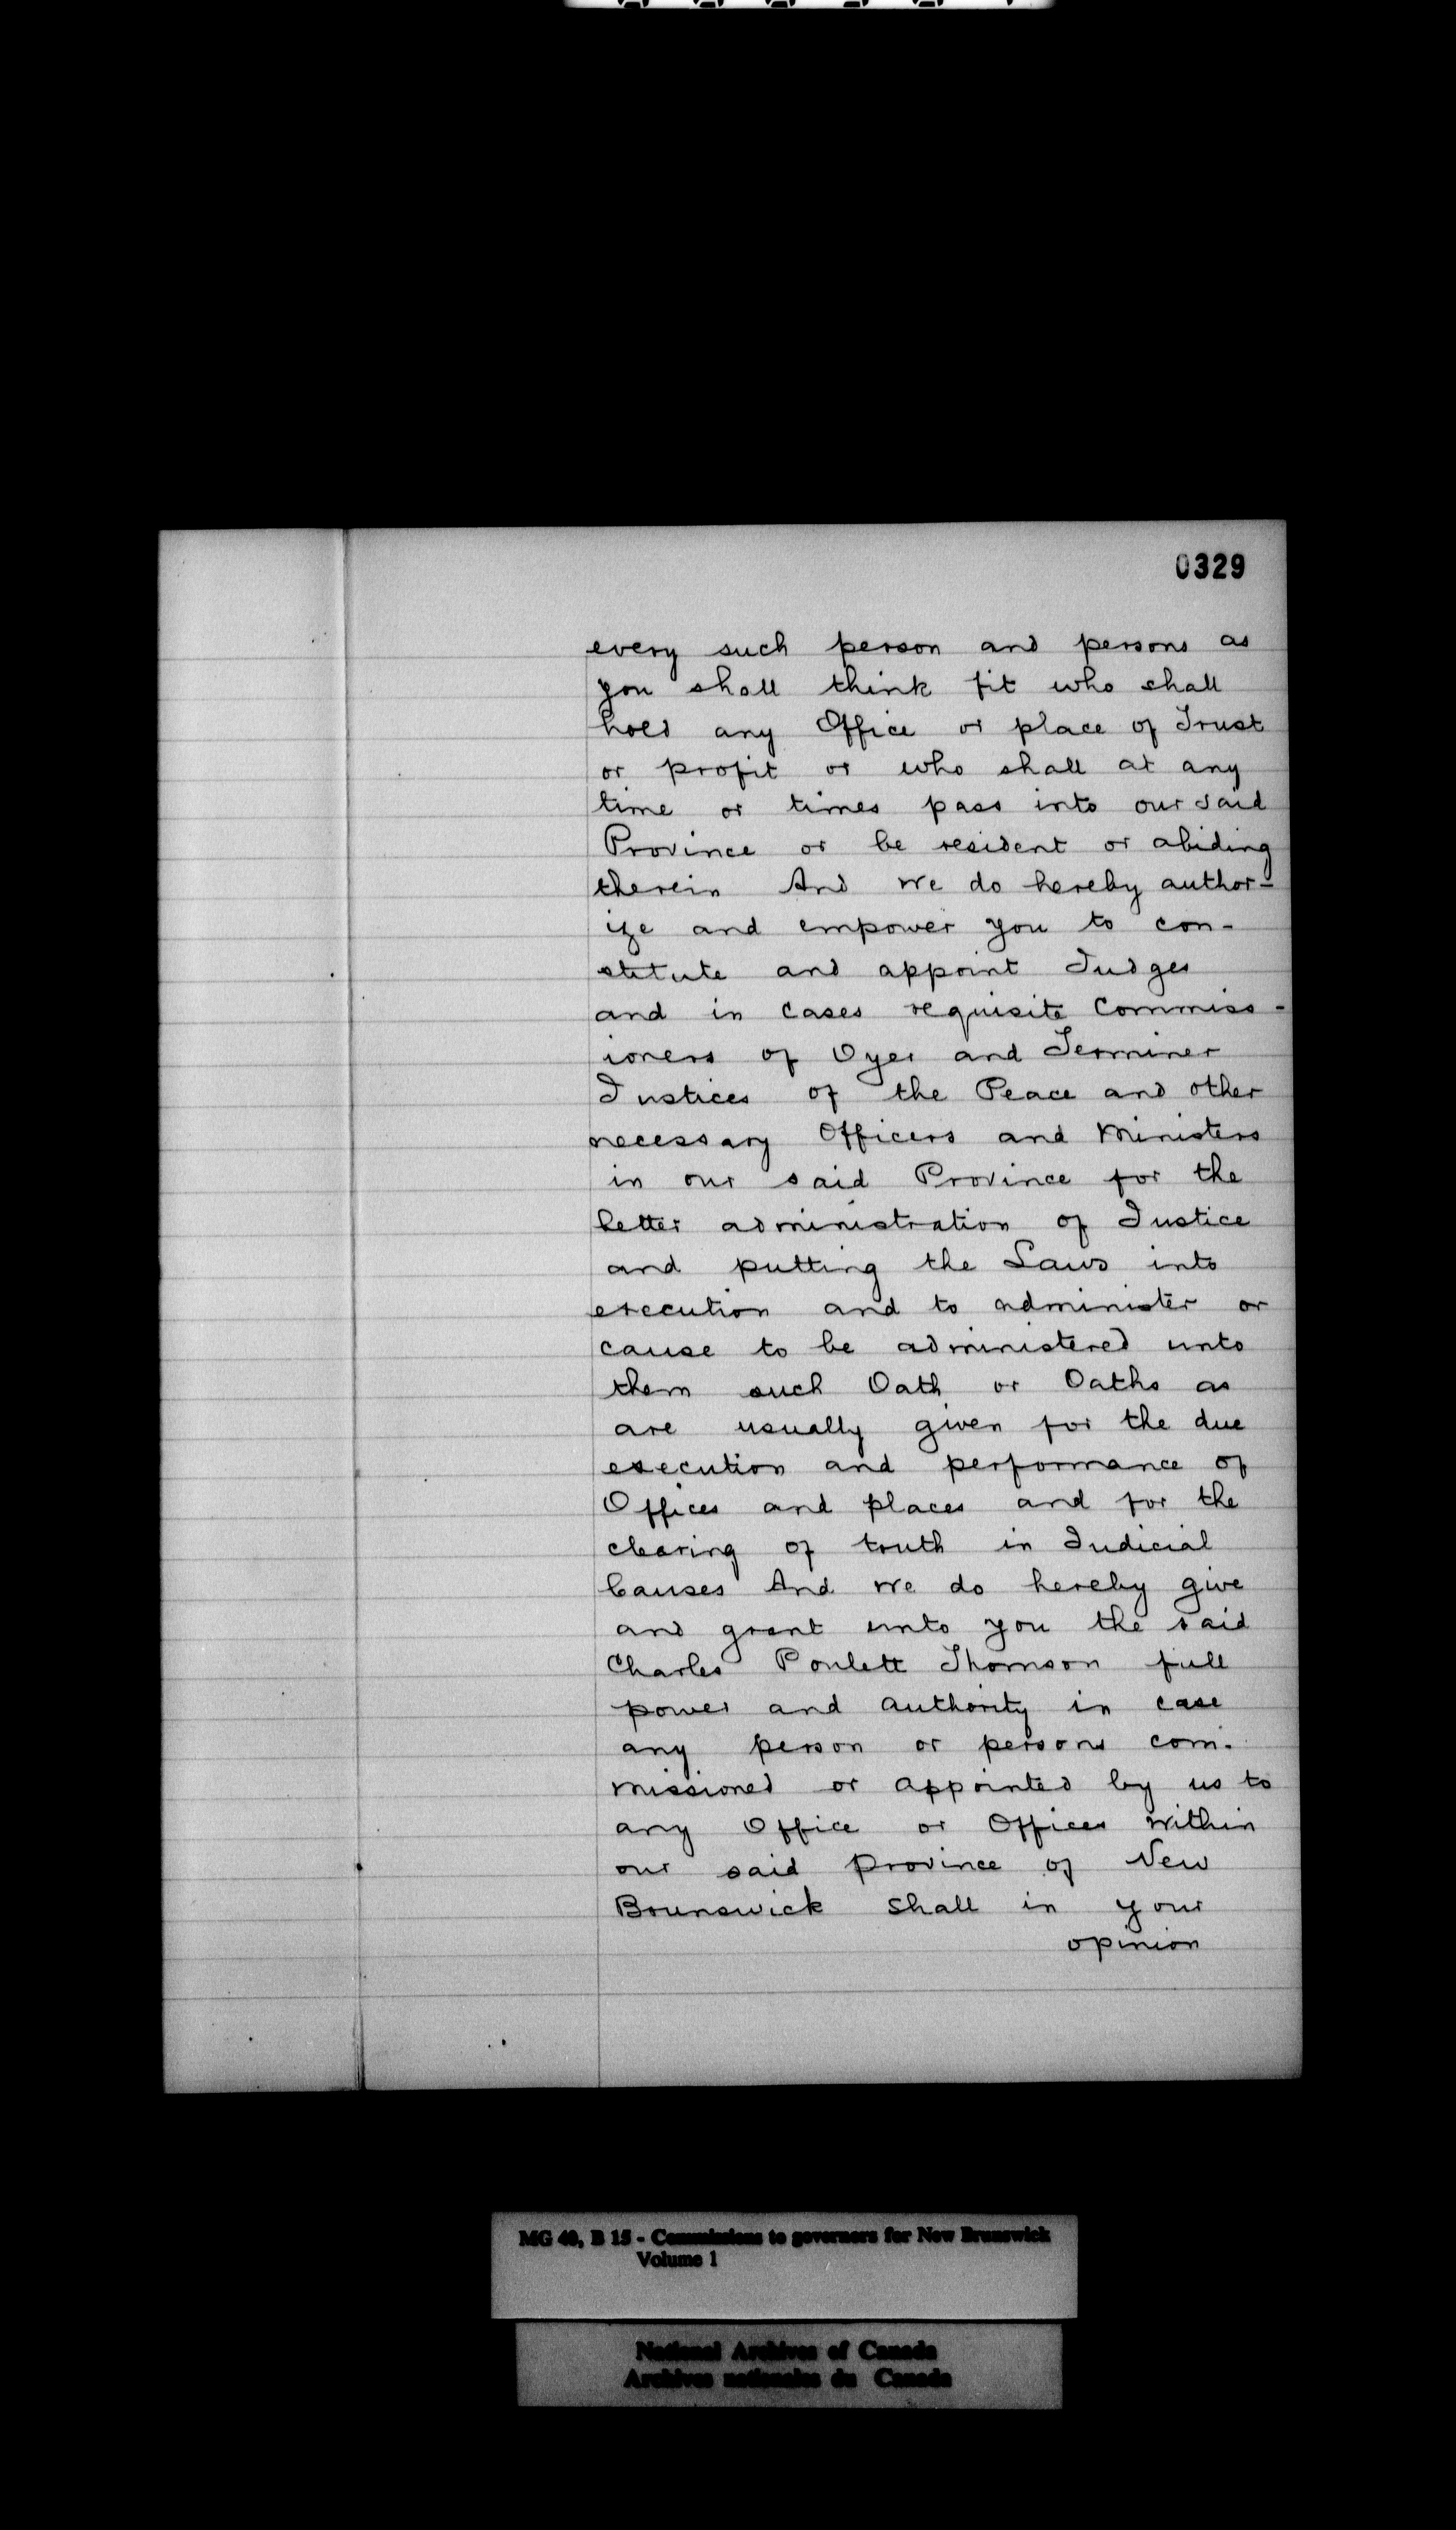 0329
every such person and persons as
you shall think fit who shall
hold any Office or place of Trust
or profit or who shall at any
time or times pass into our said
Province or be resident or abiding
therein And We do hereby author-
ize and empower you to con-
stitute and appoint Judges
and in cases requisite Commiss-
ioners of Oyer and Terminer
Justices of the Peace and other
necessary Officers and Ministers
in our said Province for the
better administration of Justice
and putting the Laws into
execution and to administer or
cause to be administered unto
them such Oath or Oaths as
are usually given for the due
execution and performance of
Offices and places and for the
clearing of truth in Judicial
Causes And We do hereby give
and grant unto you the said
Charles Poulett Thomson full
power and authority in case
any person or persons com-
missioned or appointed by us to
any Office or Offices within
our said Province of New
Brunswick shall in your
opinion
MG 40, B 15 - Commissions to governors for New Brunswick
Volume 1
National Archives of Canada
Archives nationales du Canada